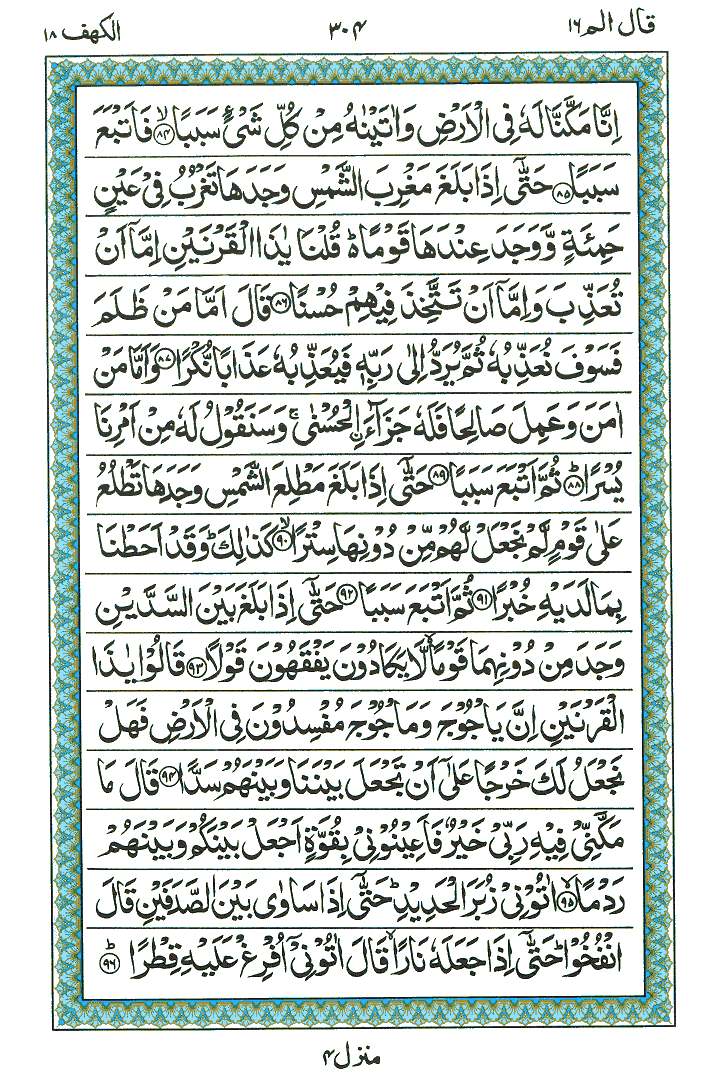 قال الم ١٦ ٣٠٤ الكهف ١٨
اِنَّا مَكَّنَّا لَهٗ فِى الْاَرْضِ وَاٰتَيْنٰهُ مِنْ كُلِّ شَىْءٍ سَبَبًا ۙ﴿۸۴﴾ فَاَتْبَعَ
سَبَبًا ﴿۸۵﴾ حَتّٰٓى اِذَا بَلَغَ مَغْرِبَ الشَّمْسِ وَجَدَهَا تَغْرُبُ فِىْ عَيْنٍ
حَمِئَةٍ وَّوَجَدَ عِنْدَهَا قَوْمًا ؕ قُلْنَا يٰذَا الْقَرْنَيْنِ اِمَّاۤ اَنْ
تُعَذِّبَ وَاِمَّاۤ اَنْ تَتَّخِذَ فِيْهِمْ حُسْنًا ﴿۸۶﴾ قَالَ اَمَّا مَنْ ظَلَمَ
فَسَوْفَ نُعَذِّبُهٗ ثُمَّ يُرَدُّ اِلٰى رَبِّهٖ فَيُعَذِّبُهٗ عَذَابًا نُّكْرًا ﴿۸۷﴾ وَاَمَّا مَنْ
اٰمَنَ وَعَمِلَ صَالِحًا فَلَهٗ جَزَآءَ ۨالْحُسْنٰى ۚ وَسَنَقُوْلُ لَهٗ مِنْ اَمْرِنَا
يُسْرًا ؕ﴿۸۸﴾ ثُمَّ اَتْبَعَ سَبَبًا ﴿۸۹﴾ حَتّٰٓى اِذَا بَلَغَ مَطْلِعَ الشَّمْسِ وَجَدَهَا تَطْلُعُ
عَلٰى قَوْمٍ لَّمْ نَجْعَلْ لَّهُمْ مِّنْ دُوْنِهَا سِتْرًا ۙ﴿۹۰﴾ كَذٰلِكَ ؕ وَقَدْ اَحَطْنَا
بِمَا لَدَيْهِ خُبْرًا ﴿۹۱﴾ ثُمَّ اَتْبَعَ سَبَبًا ﴿۹۲﴾ حَتّٰٓى اِذَا بَلَغَ بَيْنَ السَّدَّيْنِ
وَجَدَ مِنْ دُوْنِهِمَا قَوْمًا ۙ لَّا يَكَادُوْنَ يَفْقَهُوْنَ قَوْلًا ﴿۹۳﴾ قَالُوْا يٰذَا
الْقَرْنَيْنِ اِنَّ يَاْجُوْجَ وَمَاْجُوْجَ مُفْسِدُوْنَ فِى الْاَرْضِ فَهَلْ
نَجْعَلُ لَكَ خَرْجًا عَلٰٓى اَنْ تَجْعَلَ بَيْنَنَا وَبَيْنَهُمْ سَدًّا ﴿۹۴﴾ قَالَ مَا
مَكَّنِّىْ فِيْهِ رَبِّىْ خَيْرٌ فَاَعِيْنُوْنِىْ بِقُوَّةٍ اَجْعَلْ بَيْنَكُمْ وَبَيْنَهُمْ
رَدْمًا ۙ﴿۹۵﴾ اٰتُوْنِىْ زُبَرَ الْحَدِيْدِ ؕ حَتّٰٓى اِذَا سَاوٰى بَيْنَ الصَّدَفَيْنِ قَالَ
انْفُخُوْا ؕ حَتّٰٓى اِذَا جَعَلَهٗ نَارًا ۙ قَالَ اٰتُوْنِىْۤ اُفْرِغْ عَلَيْهِ قِطْرًا ؕ﴿۹۶﴾
منزل ٤